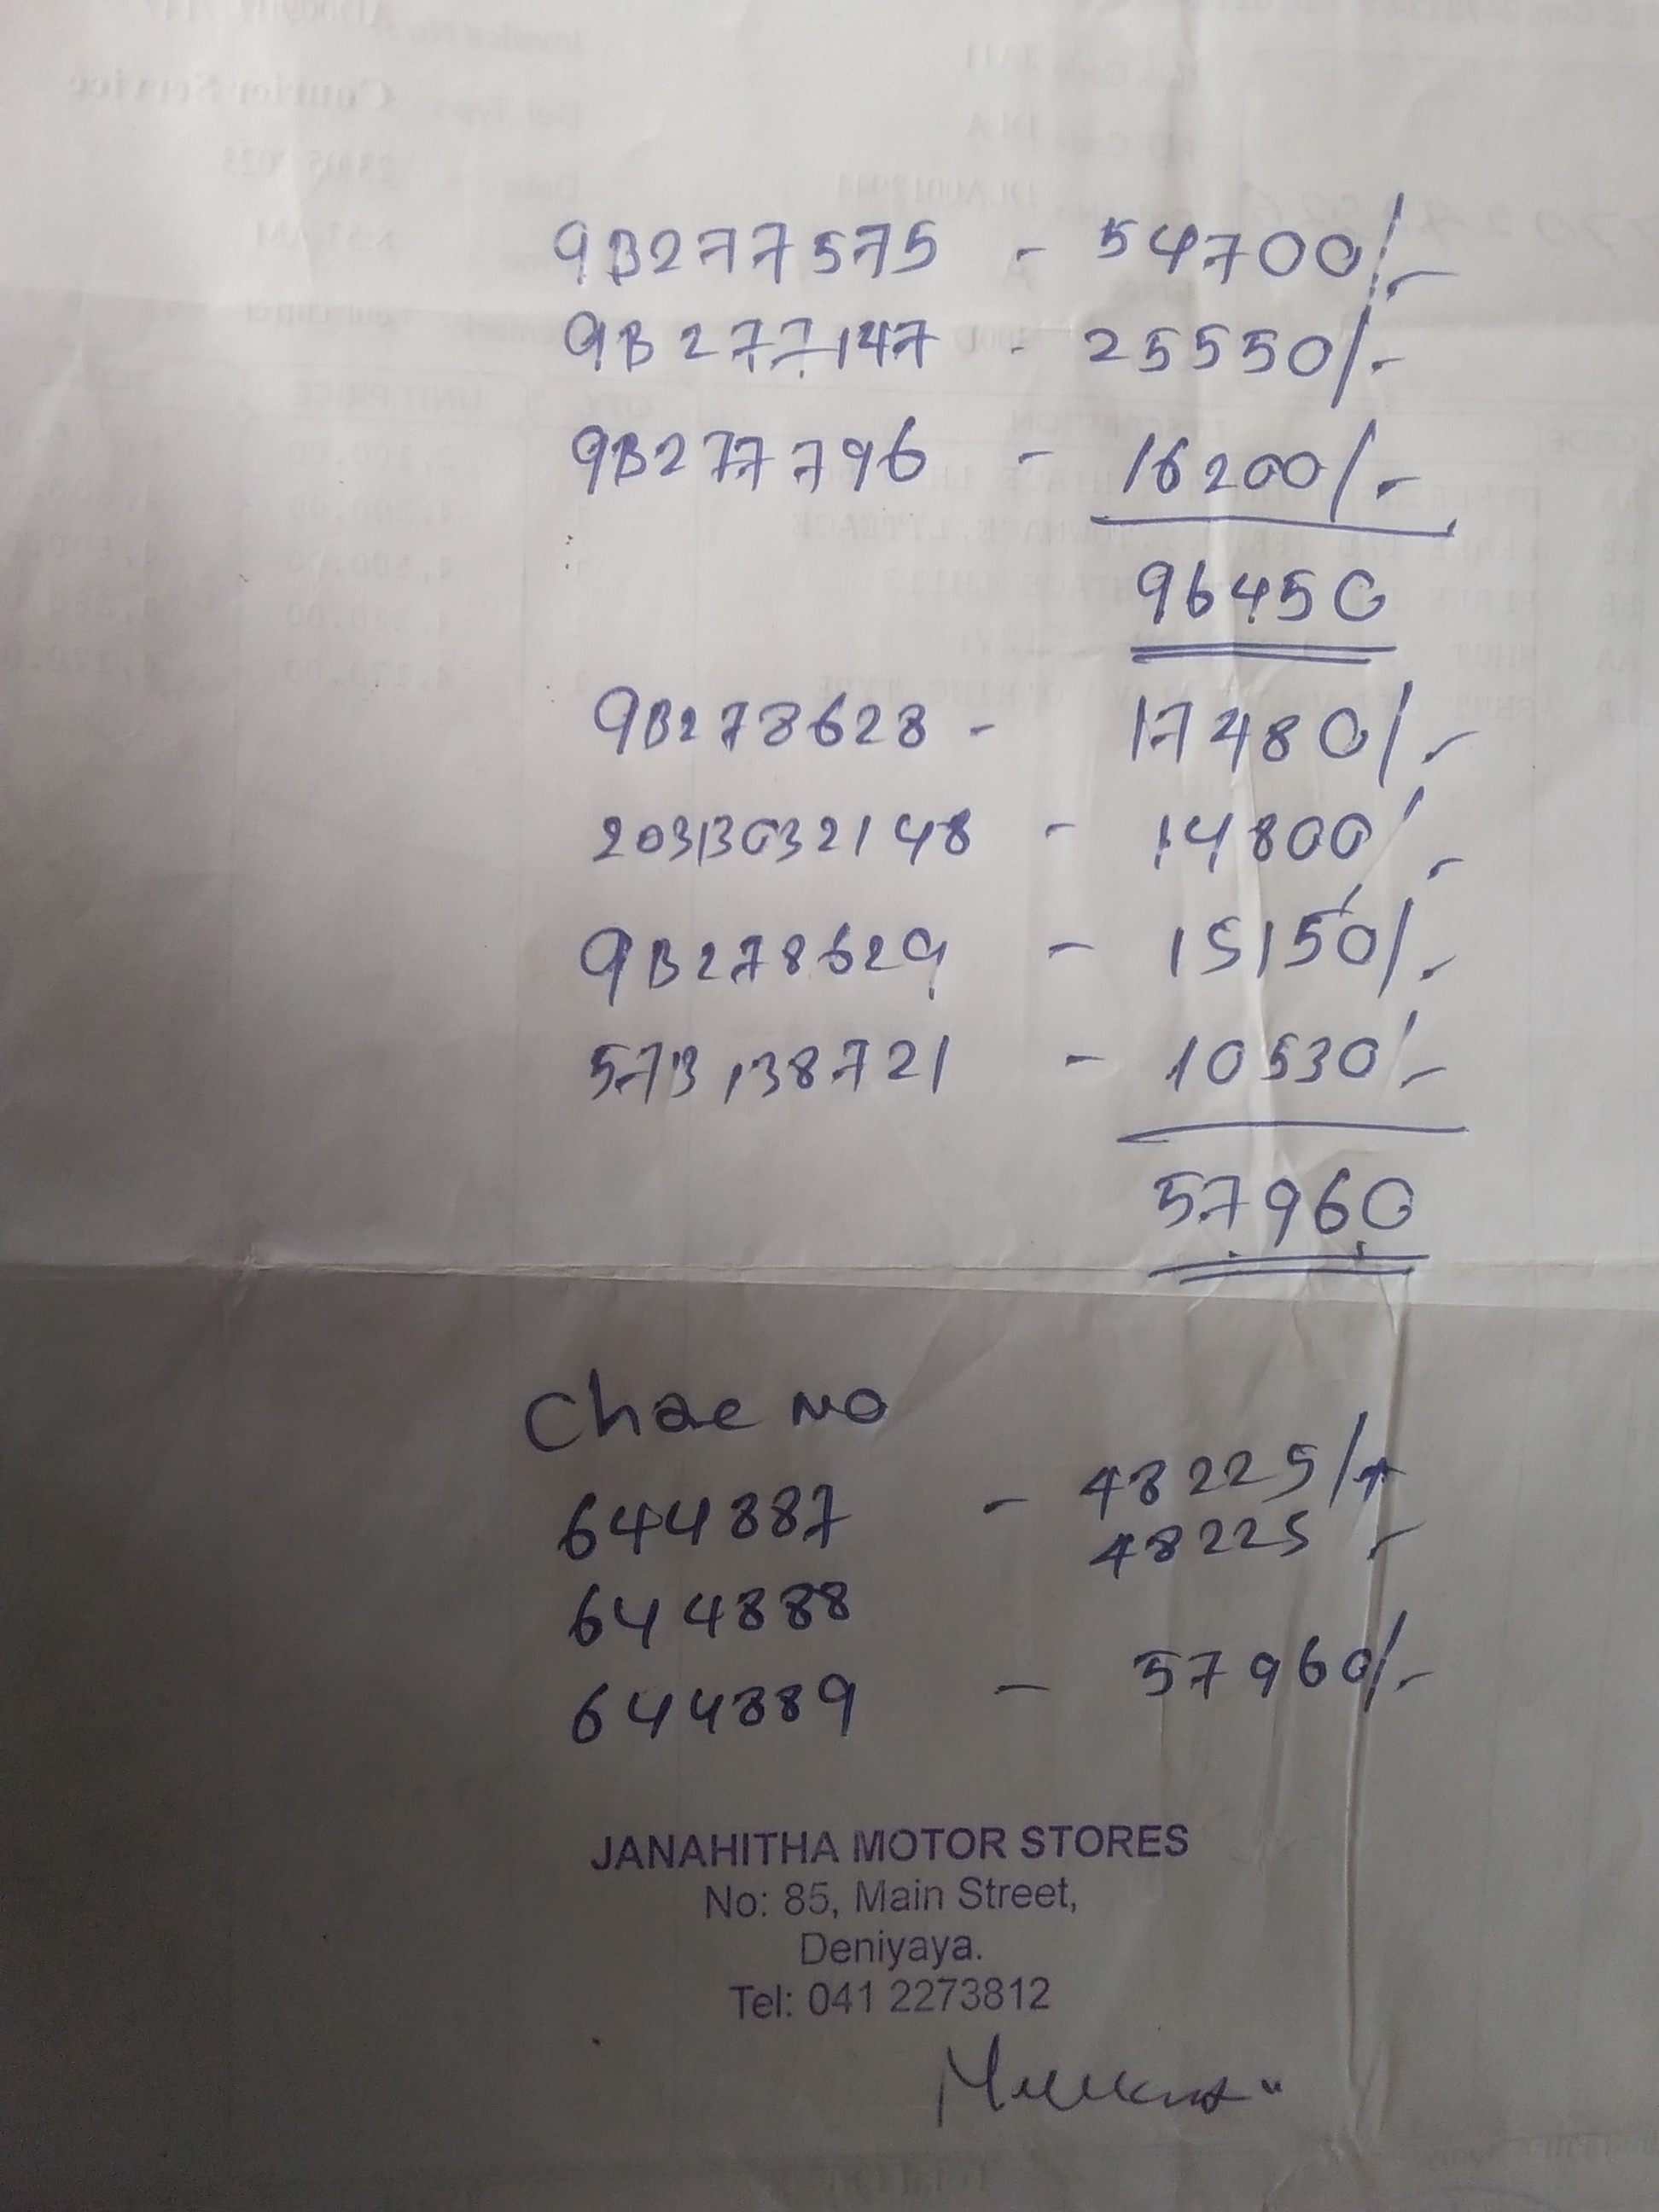 9B277575 - 54700/-
9B277147 - 25550/-
9B277796 - 16200/-
96450
9B278628 - 17480/-
20313032148 - 14800/-
9B278629 - 15150/-
573138721 - 10530/-
57960
Chae No
644887 - 48225/-
48225 -
644888
644889 - 57960/-
JANAHITHA MOTOR STORES
No: 85, Main Street,
Deniyaya.
Tel: 041 2273812